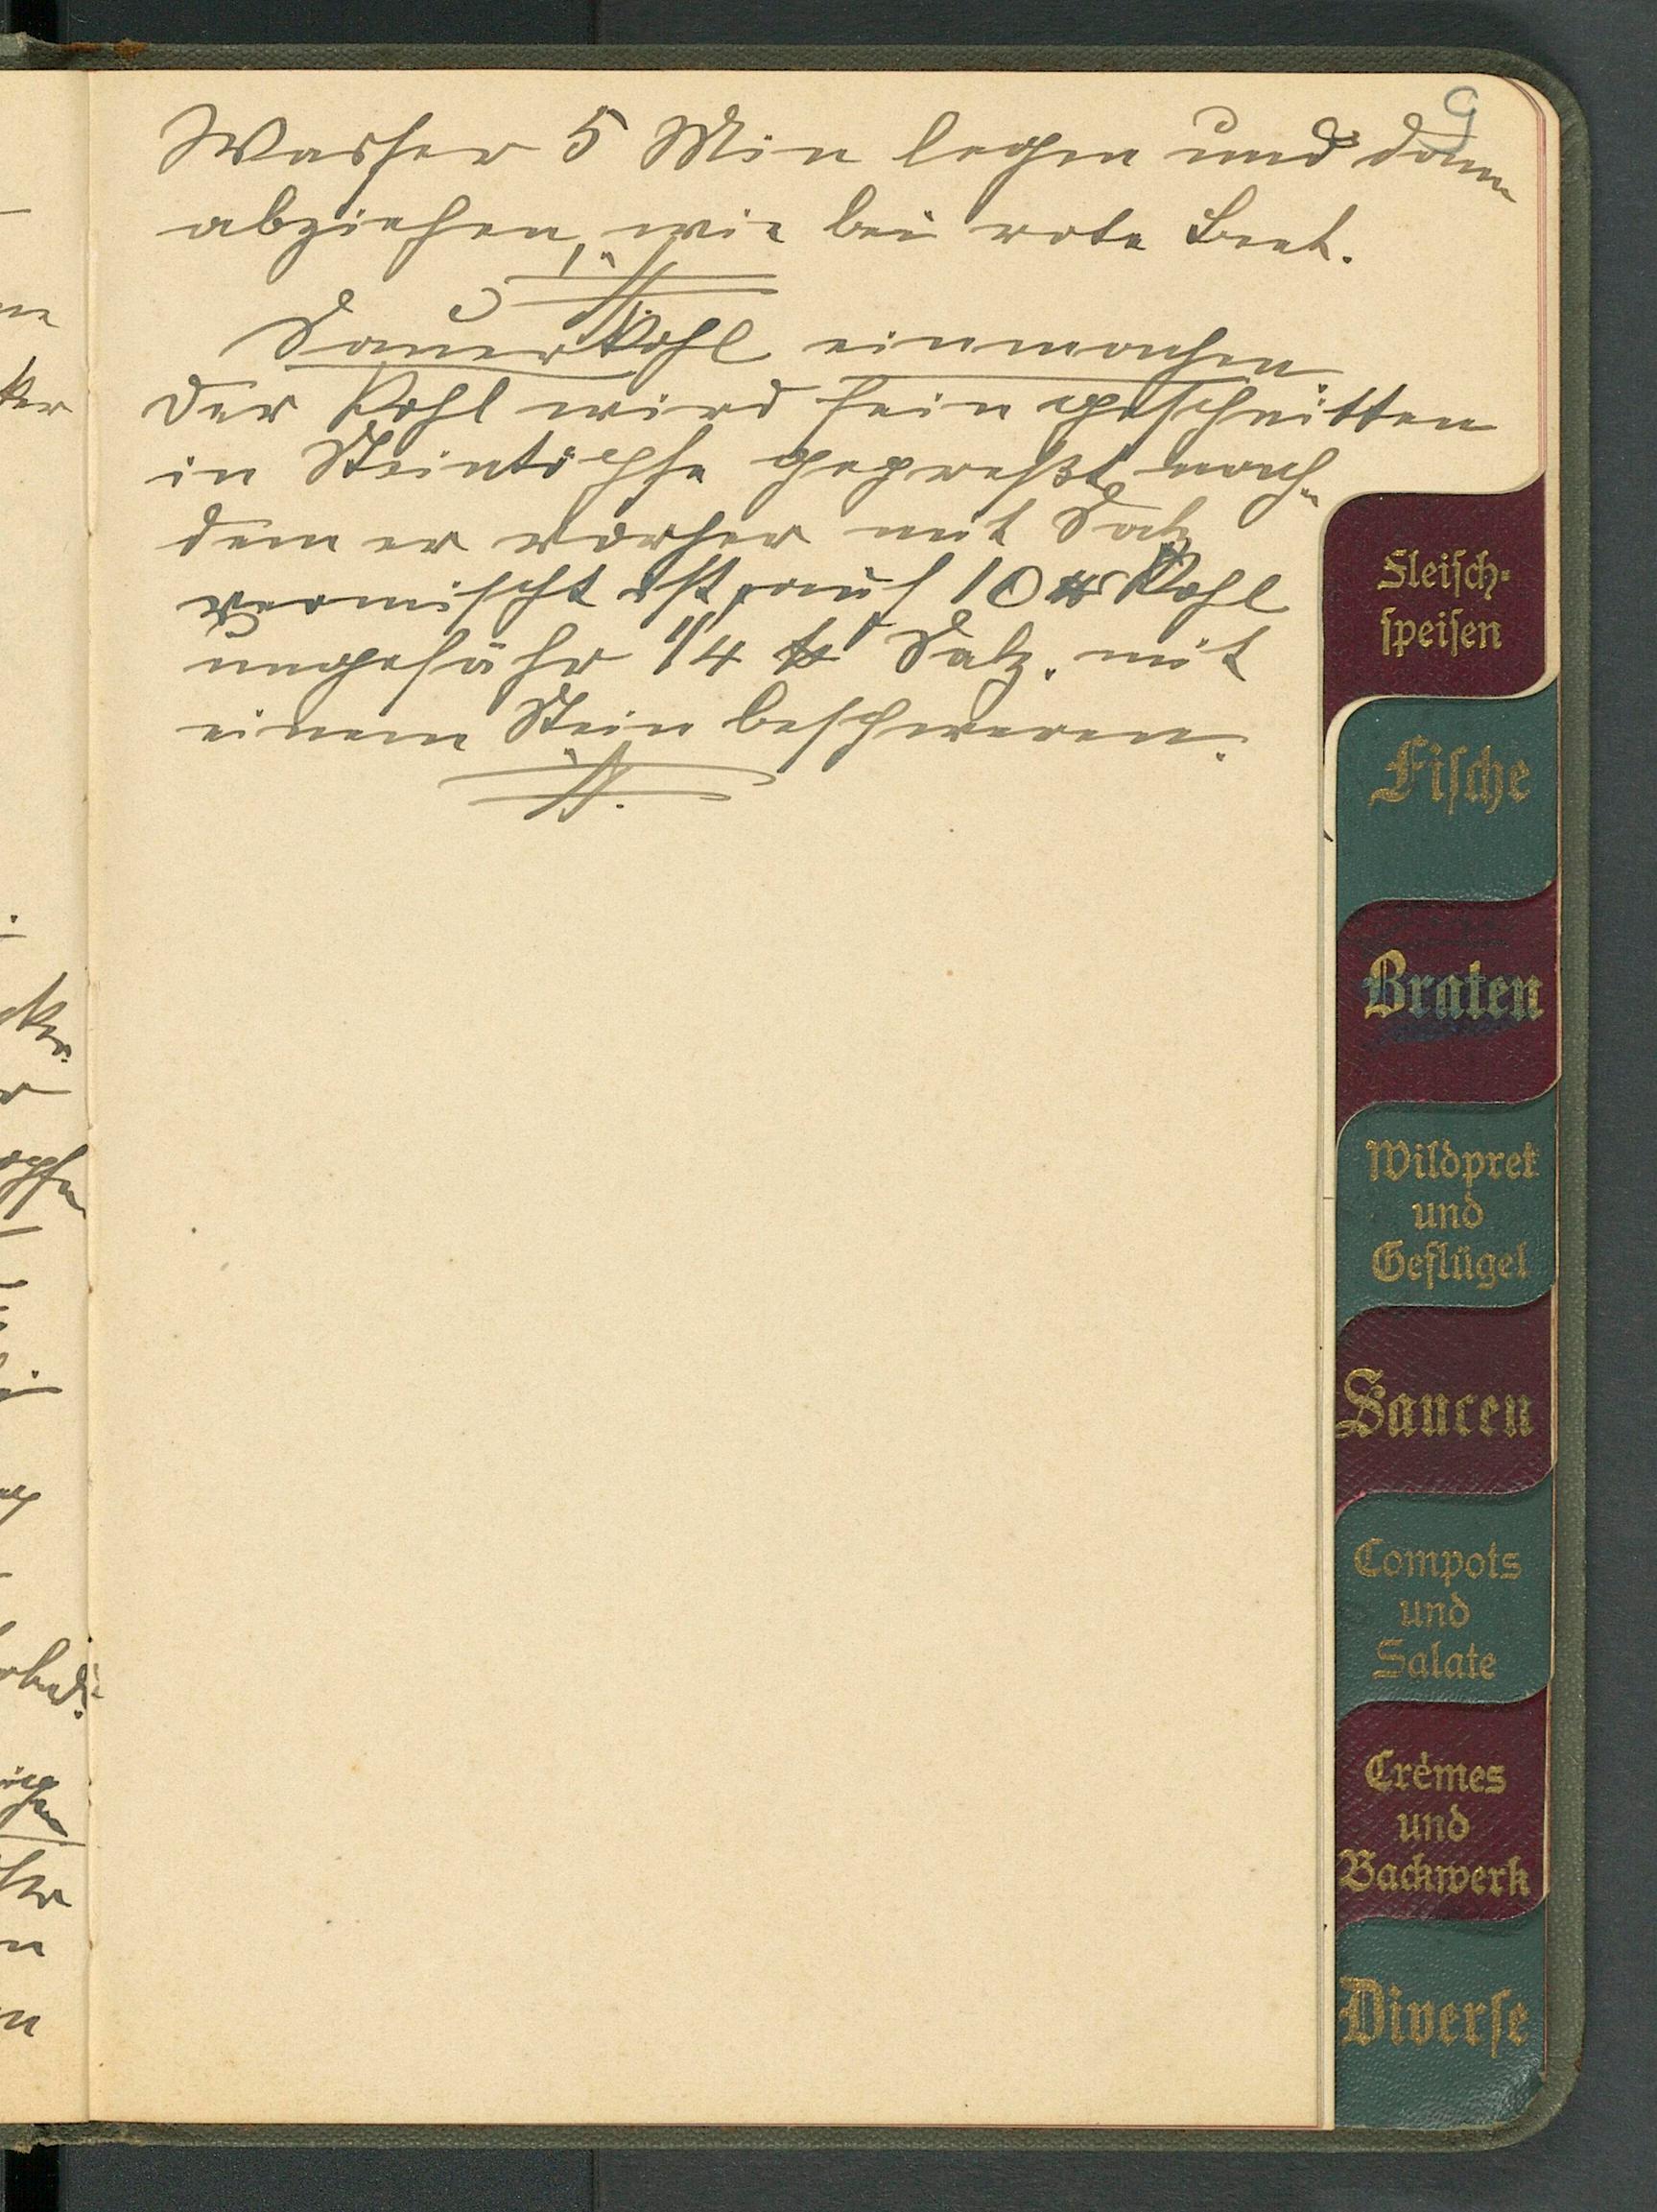 9
Wasser 5 Min legen und dann
abziehen, wie bei rote Beet.
Sauerkohl einmachen
Der Kohl wird fein geschnitten
in Steintöpfe gepreßt nach-
dem er vorher mit Salz
vermischt ist, auf 10 ℔ Kohl
ungefähr 1/4 ℔ Salz. mit
einem Stein beschweren.
Fleisch-
speisen
Fische
Braten
Wildpret
und
Geflügel
Saucen
Compots
und
Salate
Crêmes
und
Backwerk
Diverse